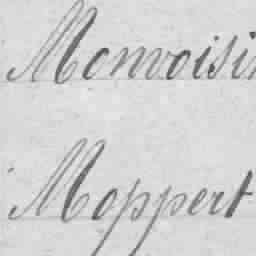 Monvoisin
Moppert